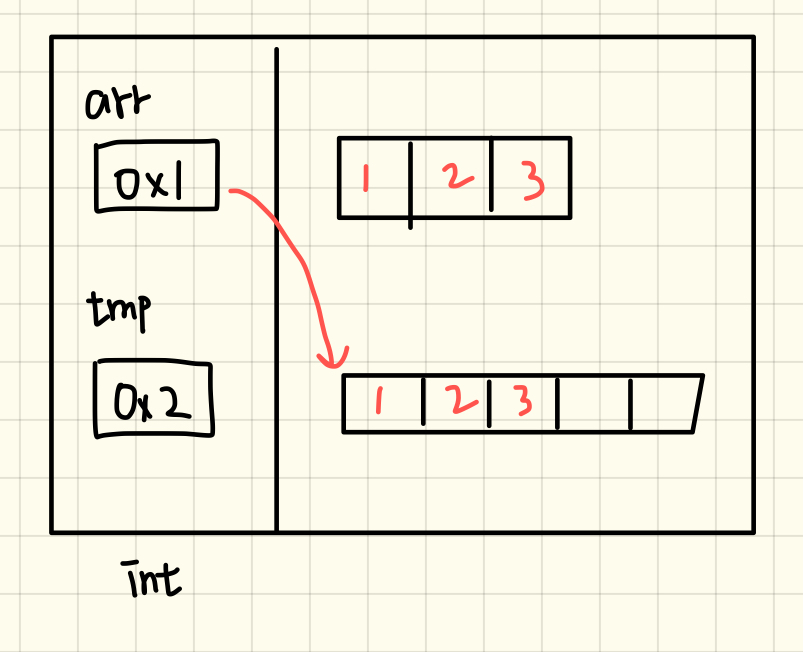 arr
0x1
1 2 3
tmp
0x2
1 2 3
int